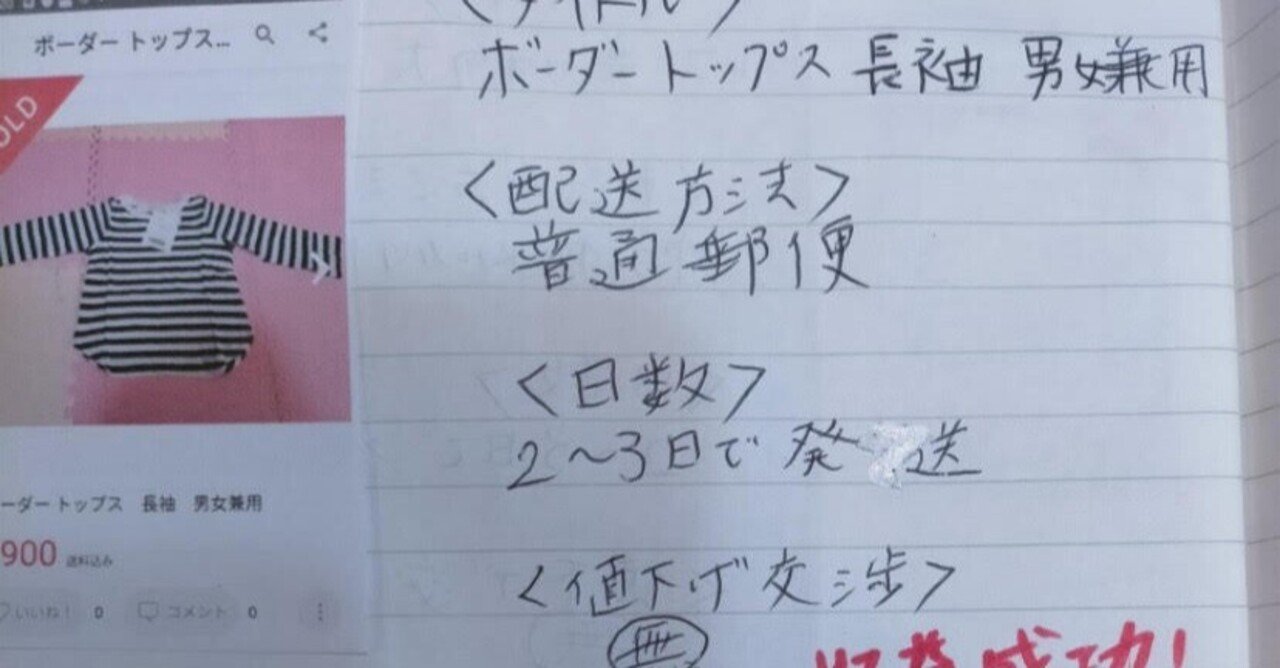 ボーダー トップス...
OLD
ーダー トップス 長袖 男女兼用
900 送料込み
いいね! 0 コメント 0
<タイトル>
ボーダートップス 長袖 男女兼用
<配送方法>
普通郵便
<日数>
2~3日で発送
<値下げ交渉>
無
成功!